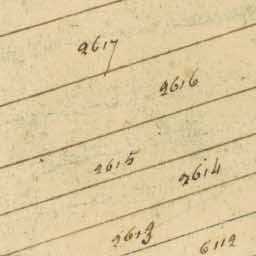 2617
2616
2615
2614
2613
6112